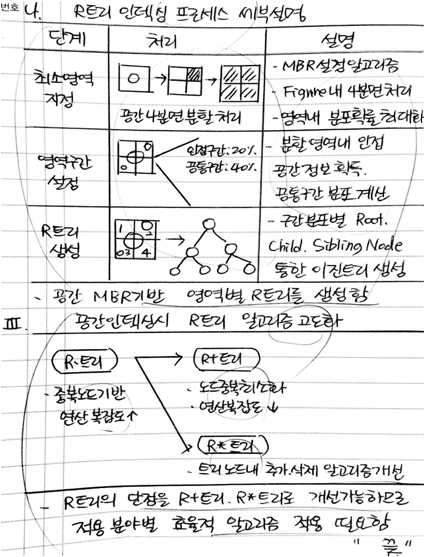 번호
나. R트리 인덱싱 프로세스 세부설명
단계 처리 설명
최소영역
지정
공간4분면 분할 처리
- MBR설정 알고리즘
- Figure내 4분면처리
- 영역내 분포확률 최대화
영역구간
설정
인접구간:20%
공통구간:40%
- 분할영역내 인접
공간정보 획득.
공통구간 분포 계산
R트리
생성
1 2
3 4
- 구간분포별 Root.
Child. Sibling Node
통한 이진트리 생성
- 공간 MBR기반 영역별 R트리를 생성함
Ⅲ. 공간인덱싱시 R트리 알고리즘 고도화
R-트리
· 중복노드기반
연산 복잡도↑
R+트리
· 노드중복최소화
· 연산복잡도↓
R*트리
· 트리노드내 추가.삭제 알고리즘개선
- R트리의 단점을 R+트리. R*트리로 개선가능하므로
적용 분야별 효율적 알고리즘 적용 필요함
" 끝 "